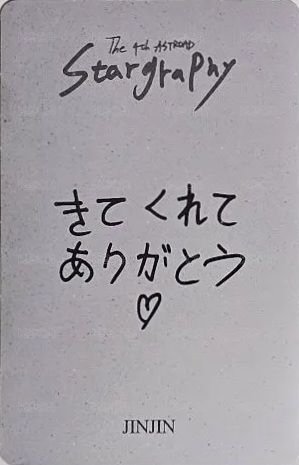 The 4th ASTROAD
Stargraphy
きてくれて
ありがとう
♡
JINJIN